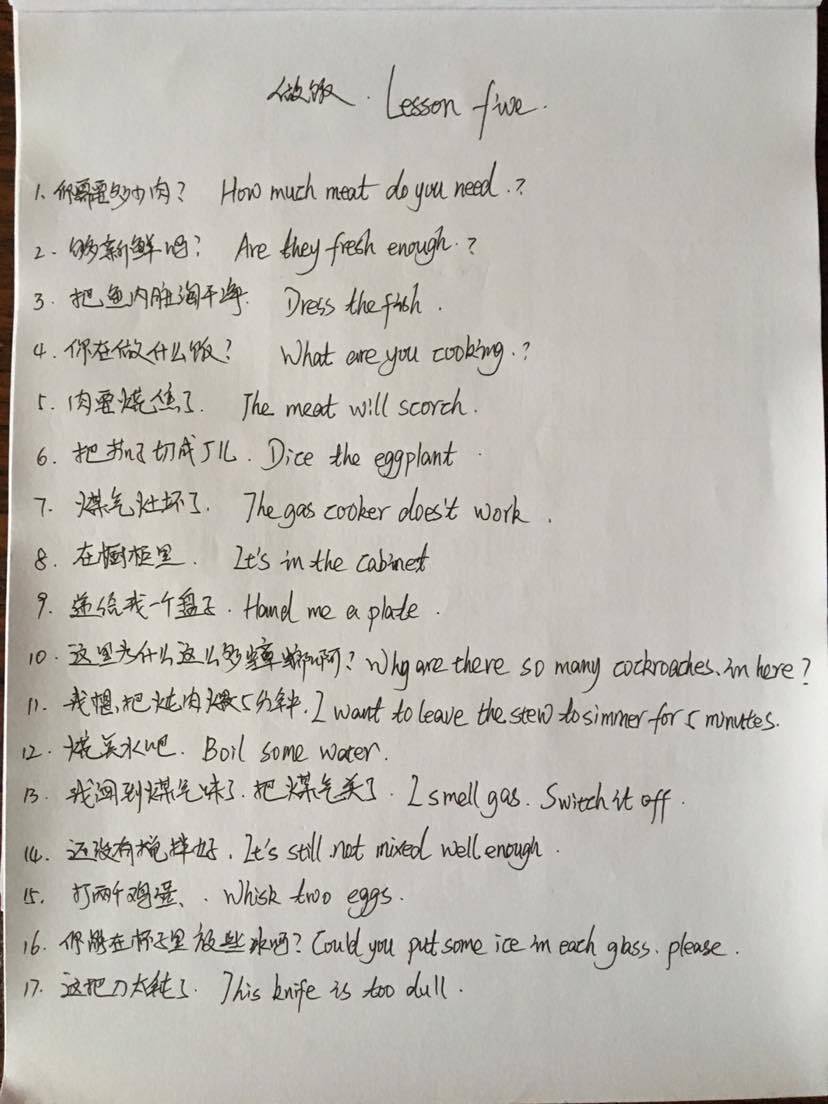 做饭. Lesson five.
1. 你需要多少肉? How much meat do you need.?
2. 够新鲜吗? Are they fresh enough.?
3. 把鱼内脏淘干净. Dress the fish.
4. 你在做什么饭? What are you cooking.?
5. 肉要烧焦了. The meat will scorch.
6. 把茄子切成丁儿. Dice the eggplant.
7. 煤气灶坏了. The gas cooker does't work.
8. 在橱柜里. It's in the cabinet
9. 递给我一个盘子. Hand me a plate.
10. 这里为什么这么多蟑螂啊? Why are there so many cockroaches in here?
11. 我想把炖肉煨5分钟. I want to leave the stew to simmer for 5 minutes.
12. 烧点水吧. Boil some water.
13. 我闻到煤气味了. 把煤气关了. I smell gas. Switch it off.
14. 还没有搅拌好. It's still not mixed well enough.
15. 打两个鸡蛋. Whisk two eggs.
16. 你能在杯子里放些冰吗? Could you put some ice in each glass. please.
17. 这把刀太钝了. This knife is too dull.